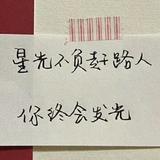 星光不负赶路人
你终会发光